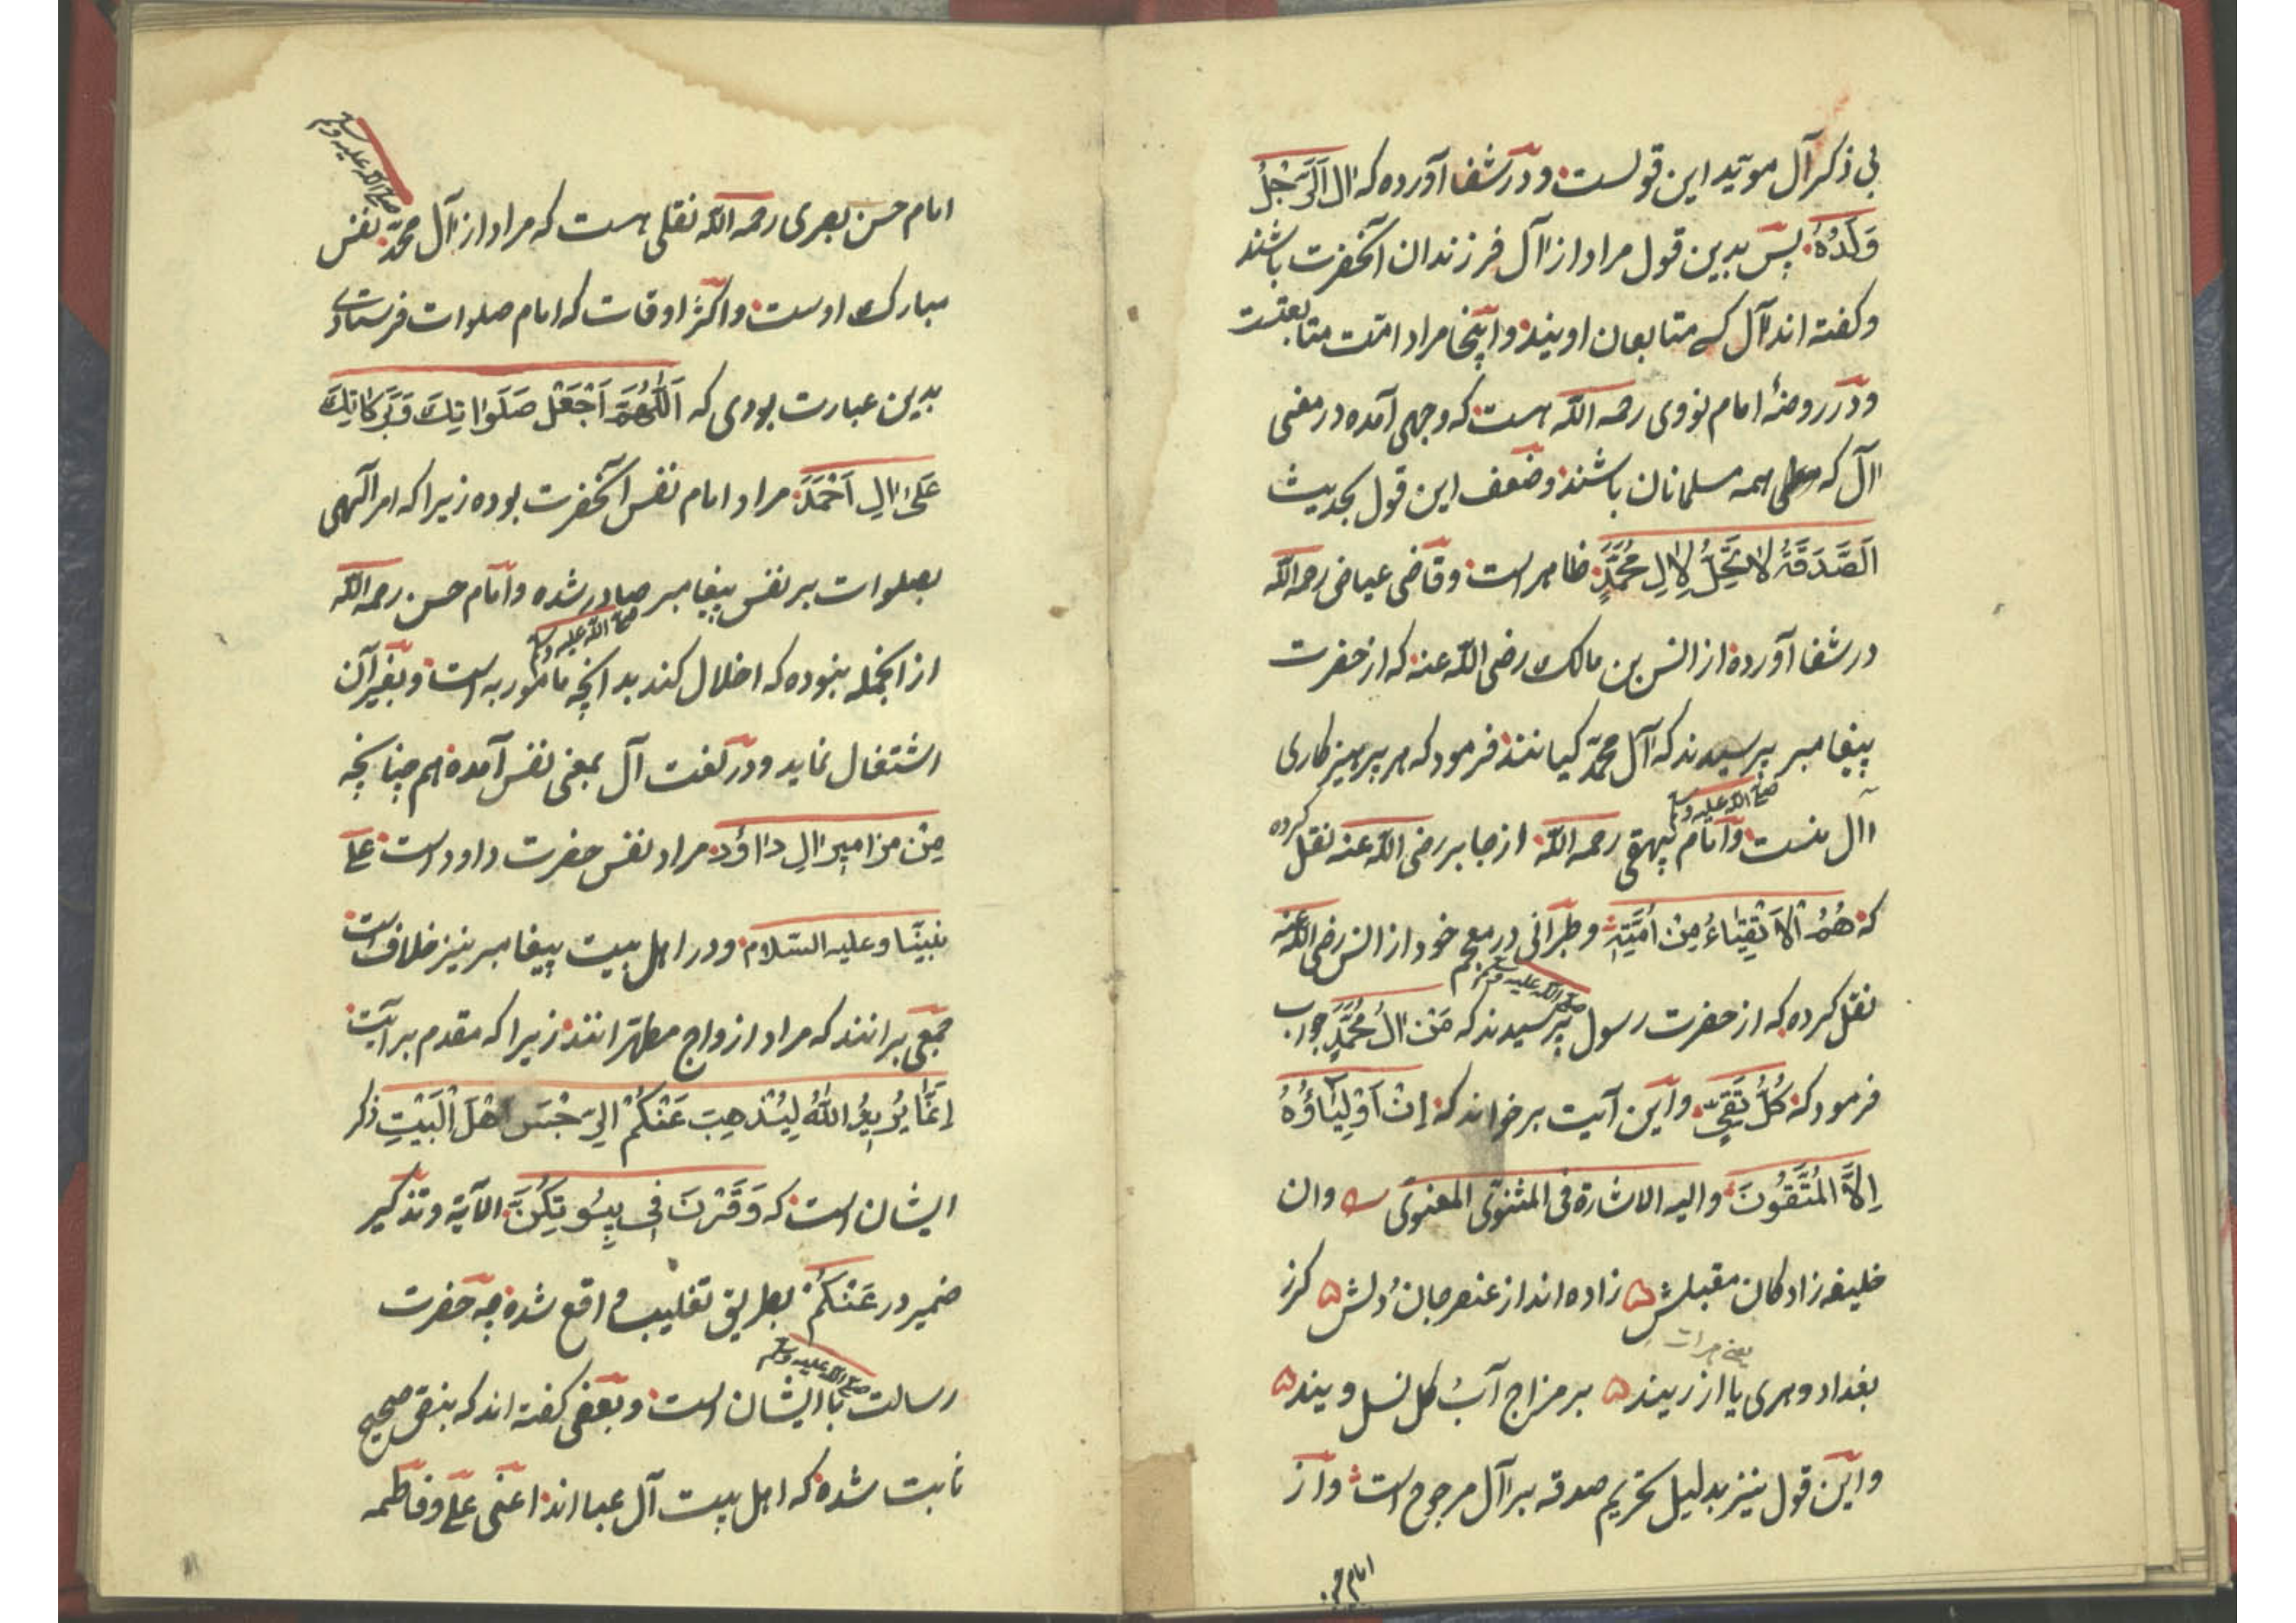 بی ذکر آل موید این قولست و در شفا آورده که ال الرجل
ولده پس بدین قول مراد از آل فرزندان آنحضرت باشند
و کفته اند آل کسی متابعان اویند و اینجا مراد امت متابعتست
و در روضهٔ امام نووی رحمه الله هست که وجهی آمده در معنی
آل که همه مسلمانان باشند و ضعف این قول بحدیث
اَلصَّدَقَةُ لَا تَحِلُّ لِاٰلِ مُحَمَّدٍ ظاهر است و قاضی عیاض رحمه الله
در شفا آورده از انس بن مالک رضی الله عنه که از حضرت
پیغامبر پرسیدند که آل محمد کیانند فرمود که هر پرهیز کاری
صلی الله علیه وسلم
آل منست و امام بیهقی رحمه الله از جابر رضی الله عنه نقل کرده
که هُمُ الْاَتْقِیَاءُ مِنْ اُمَّتِی و طبرانی در معجم خود از انس رضی الله عنه
صلی الله علیه وسلم
نقل کرده که از حضرت رسول پرسیدند که مَنْ اٰلُ مُحَمَّدٍ جواب
فرمود که کُلُّ تَقِیٍّ و این آیت برخواند که اِنْ اَوْلِیَاؤُهُ
اِلَّا الْمُتَّقُونَ و الیه الاشارة فی المثنوی المعنوی وان
خلیفه زادکان مقبلش زاده اند از عنصر جان و دلش کرز
یعنی هرات
بغداد و هری یا از ریند بر مزاج آب و کل نسل ویند
و این قول نیز بدلیل تحریم صدقه بر آل مرجوح است و از
امام ح
صلی الله علیه وسلم
امام حسن بصری رحمه الله نقلی هست که مراد از آل محمد نفس
مبارک اوست و اکثر اوقات که امام صلوات فرستادی
بدین عبارت بودی که اَللّٰهُمَّ اجْعَلْ صَلَوَاتِكَ وَبَرَكَاتِكَ
عَلٰی اٰلِ اَحْمَدَ مراد امام نفس آنحضرت بوده زیرا که امر الهی
بصلوات بر نفس پیغامبر صادر شده و امام حسن رحمه الله
صلی الله علیه وسلم
از انجمله نبوده که اخلال کند بد انچه مامور به است و بغیر آن
اشتغال نماید و در لغت آل بمعنی نفس آمده هم چنانچه
مِنْ مزامیر اٰلِ دَاوُد مراد نفس حضرت داود است علی
نبینا و علیه السلام و در اهل بیت پیغامبر نیز خلاف است
جمعی برانند که مراد ازواج مطهرانند زیرا که مقدم بر آیت
اِنَّمَا یُرِیدُ اللّٰهُ لِیُذْهِبَ عَنْكُمُ الرِّجْسَ اَهْلَ الْبَیْتِ ذکر
ایشان است که وَقَرْنَ فِی بُیُوتِكُنَّ الآیة و تذکیر
ضمیر در عَنْكُمْ بطریق تغلیب واقع شده چه حضرت
صلی الله علیه وسلم
رسالت با ایشان است و بعضی کفته اند که بنقل صحیح
ثابت شده که اهل بیت آل عبا اند اعنی علی و فاطمه